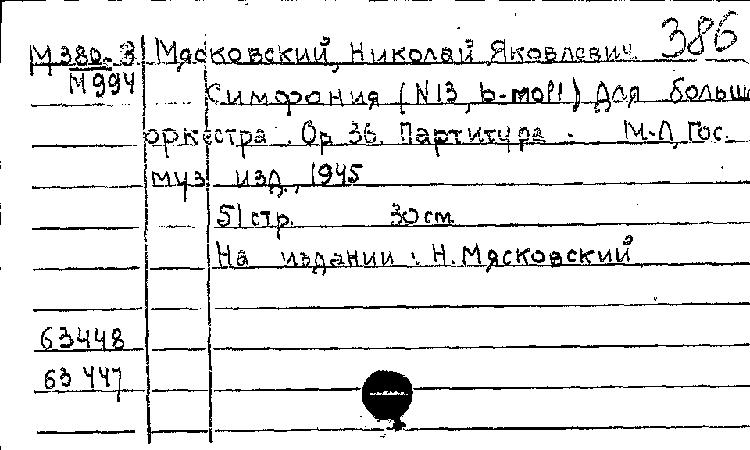 М380-3 Мясковский, Николай Яковлевич 386
М994 Симфония (N13, b-moll) для больш
оркестра. Ор 36. Партитура. М-Л, Гос.
муз изд., 1945
51 стр. 30 см
На издании: Н. Мясковский
63448
63447